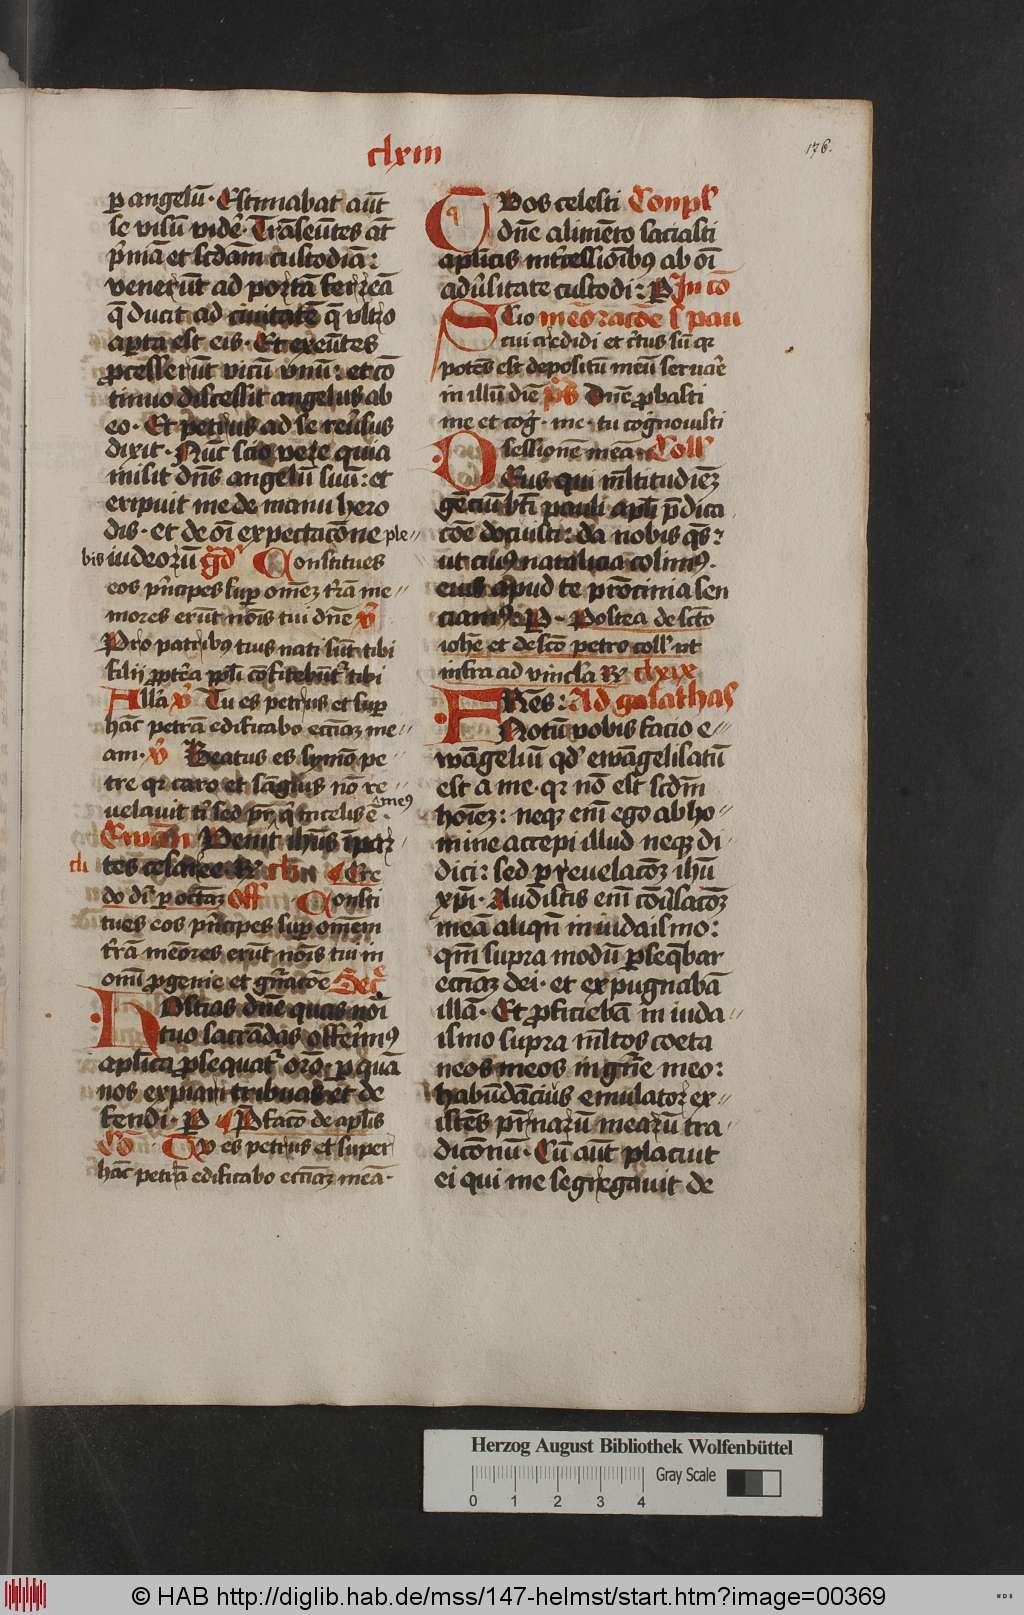 clxiii
176.
p angelū· Estimabat aūt
se visū vidē· Trāseūtes at̄
p̄mā et scdām custodiā:
venerūt ad portā ferreā
q̄ ducit ad ciuitatē q̄ vltro
aperta est eis· Et exeūtes
processerūt vicū vnū: et cō
tinuo discessit angelus ab
eo· Et petrus ad se reūsus
dixit· Nūc scio vere quia
misit dn̄s angelū suū: et
eripuit me de manu hero
dis· et de oī expectacōne ple〃
bis iudeorū gͬd Constitues
eos p̄ncipes sup omēz tr̄am me〃
mores erūt nois tui dn̄e v̄
Pro patribꝰ tuis nati sūt tibi
filij propt̄ea ppl̄i cōfitebūtr̄ tibi
Allā v̄ Tu es petrus et sup
hāc petrā edificabo ecciāz me〃
am· v̄ Beatus es symō pe
tre qr caro et sāgius nō re〃
uelauit t̄ sed pr̄ q̄ in celis ē· meꝰ
Ewāḡ Venit ihūs ī par
tes cesaree
Cre
do di p octauaz Off Consti
tues eos p̄ncipes sup omēm
tr̄ām mēores erūt nois tui in
omī progenie et gn̄acōe Sec̄
Hostias dn̄e quas noī
tuo sacrādas offerimꝰ
aplica prosequat̄ orō· p quā
nos expiari tribuas et de
fendi· P P̄facō de aplis
Cō Tv es petrus et super
hāc petrā edificabo ecciāz meā·
QVos celesti Conpl̄
dn̄e alimēto saciasti
aplicis int̄cessiōibꝰ ab oī
adūsitate custodi: P In cō
Scio mēoracōe s pau
cui credidi et c̄tus sū qr
potēs est depositū meū seruare
in illū diē p̄s Dn̄e probasti
me et cog· me· tu cognouisti
sessionē meā· Coll
Deus qui ml̄titudiēz
gēciū bt̄i pauli apl̄i p̄dica
cōe docuisti: da nobis q̄s:
ut cuiꝰ natalicia colimꝰ·
eius apud te pr̄ocinia sen
ciamꝰ P· Postea de scto
iohē et de scō petro coll' vt
infra ad vincla R clxix
FRēs: Ad galathas
Notū vobis facio e〃
wāgeliū qd' ewāgelisatū
est a me· qr nō est scdm̄
hoiēz: neqz em̄ ego ab ho〃
mine accepi illud neqz di
dici: sed p reuelacōz ihū
xp̄i· Audistis em̄ cōūsacōz
meā aliqn̄ in iudaismo:
qm̄ supra modū pseq̄bar
ecciāz dei· et expugnabā
illā· Et proficiebā in iuda〃
ismo supra ml̄tos coeta
neos meos in gn̄e meo:
habūdācius emulator ex〃
istēs pr̄narū mearū tra
dicōnū· Cū aūt placuit
ei qui me segregauit de
Herzog August Bibliothek Wolfenbüttel
0 1 2 3 4
Gray Scale
© HAB http://diglib.hab.de/mss/147-helmst/start.htm?image=00369